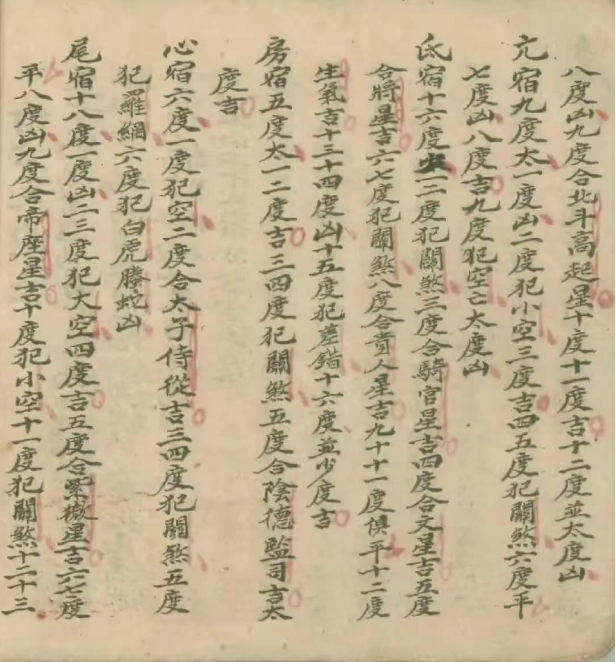 八度凶九度合北斗高起星十度十一度吉十二度並太度凶
亢宿九度太一度凶二度犯小空三度吉四五度犯關煞六度平
七度凶八度吉九度犯空亡太度凶
氐宿十六度少一二度犯關煞三度合騎官星吉四度合文星吉五度
合將星吉六七度犯關煞八度合貴人星吉九十十一度俱平十二度
生氣吉十三十四度凶十五度犯差錯十六度並少度吉
房宿五度太一二度吉三四度犯關煞五度合陰德監司吉太
度吉
心宿六度一度犯空二度合太子侍從吉三四度犯關煞五度
犯羅網六度犯白虎螣蛇凶
尾宿十八度一度凶二三度犯大空四度吉五度合紫微星吉六七度
平八度凶九度合帝座星吉十度犯小空十一度犯關煞十二十三